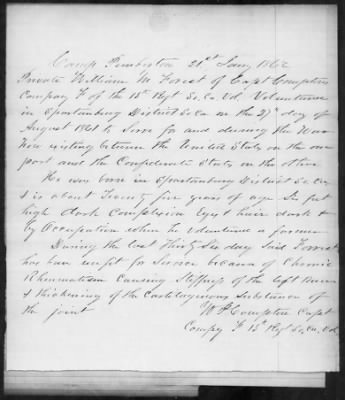 Camp Pemberton 21st Jany 1862
Private William M Forest of Capt Compton
Company F of the 13th Regt So. Ca. Vol. Volunteered
in Spartanburg District So Ca on the 27th day of
August 1861 to Serve for and during the War
now existing between the United States on the one
part and the Confederate States on the other
He was born in Spartanburg District So. Ca.
& is about Twenty five years of age Six feet
high dark Complexion Eyes & hair dark &
by Occupation when he volunteered a farmer
During the last Thirty Six days Said Forrest
has been unfit for Service because of Chronic
Rheumatism Causing Stiffness of the left Knee
& thickening of the Cartilaginous Substance of
the joint
Compton Capt
Compy F 13th Regt So. Ca. Vol